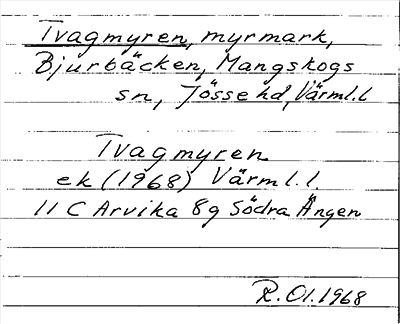 Tvagmyren, myrmark,
Bjurbäcken, Mangskogs
sn, Jösse hd, Värml. l
Tvagmyren
ek (1968) Värml. l.
11 C Arvika 8g Södra Ängen
R. Ol. 1968